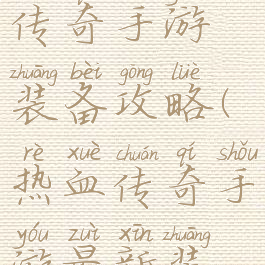 传奇手游
zhuāng bèi gōng lüè
装备攻略(
rè xuè chuán qí shǒu
热血传奇手
yóu zuì xīn zhuāng
游最新装